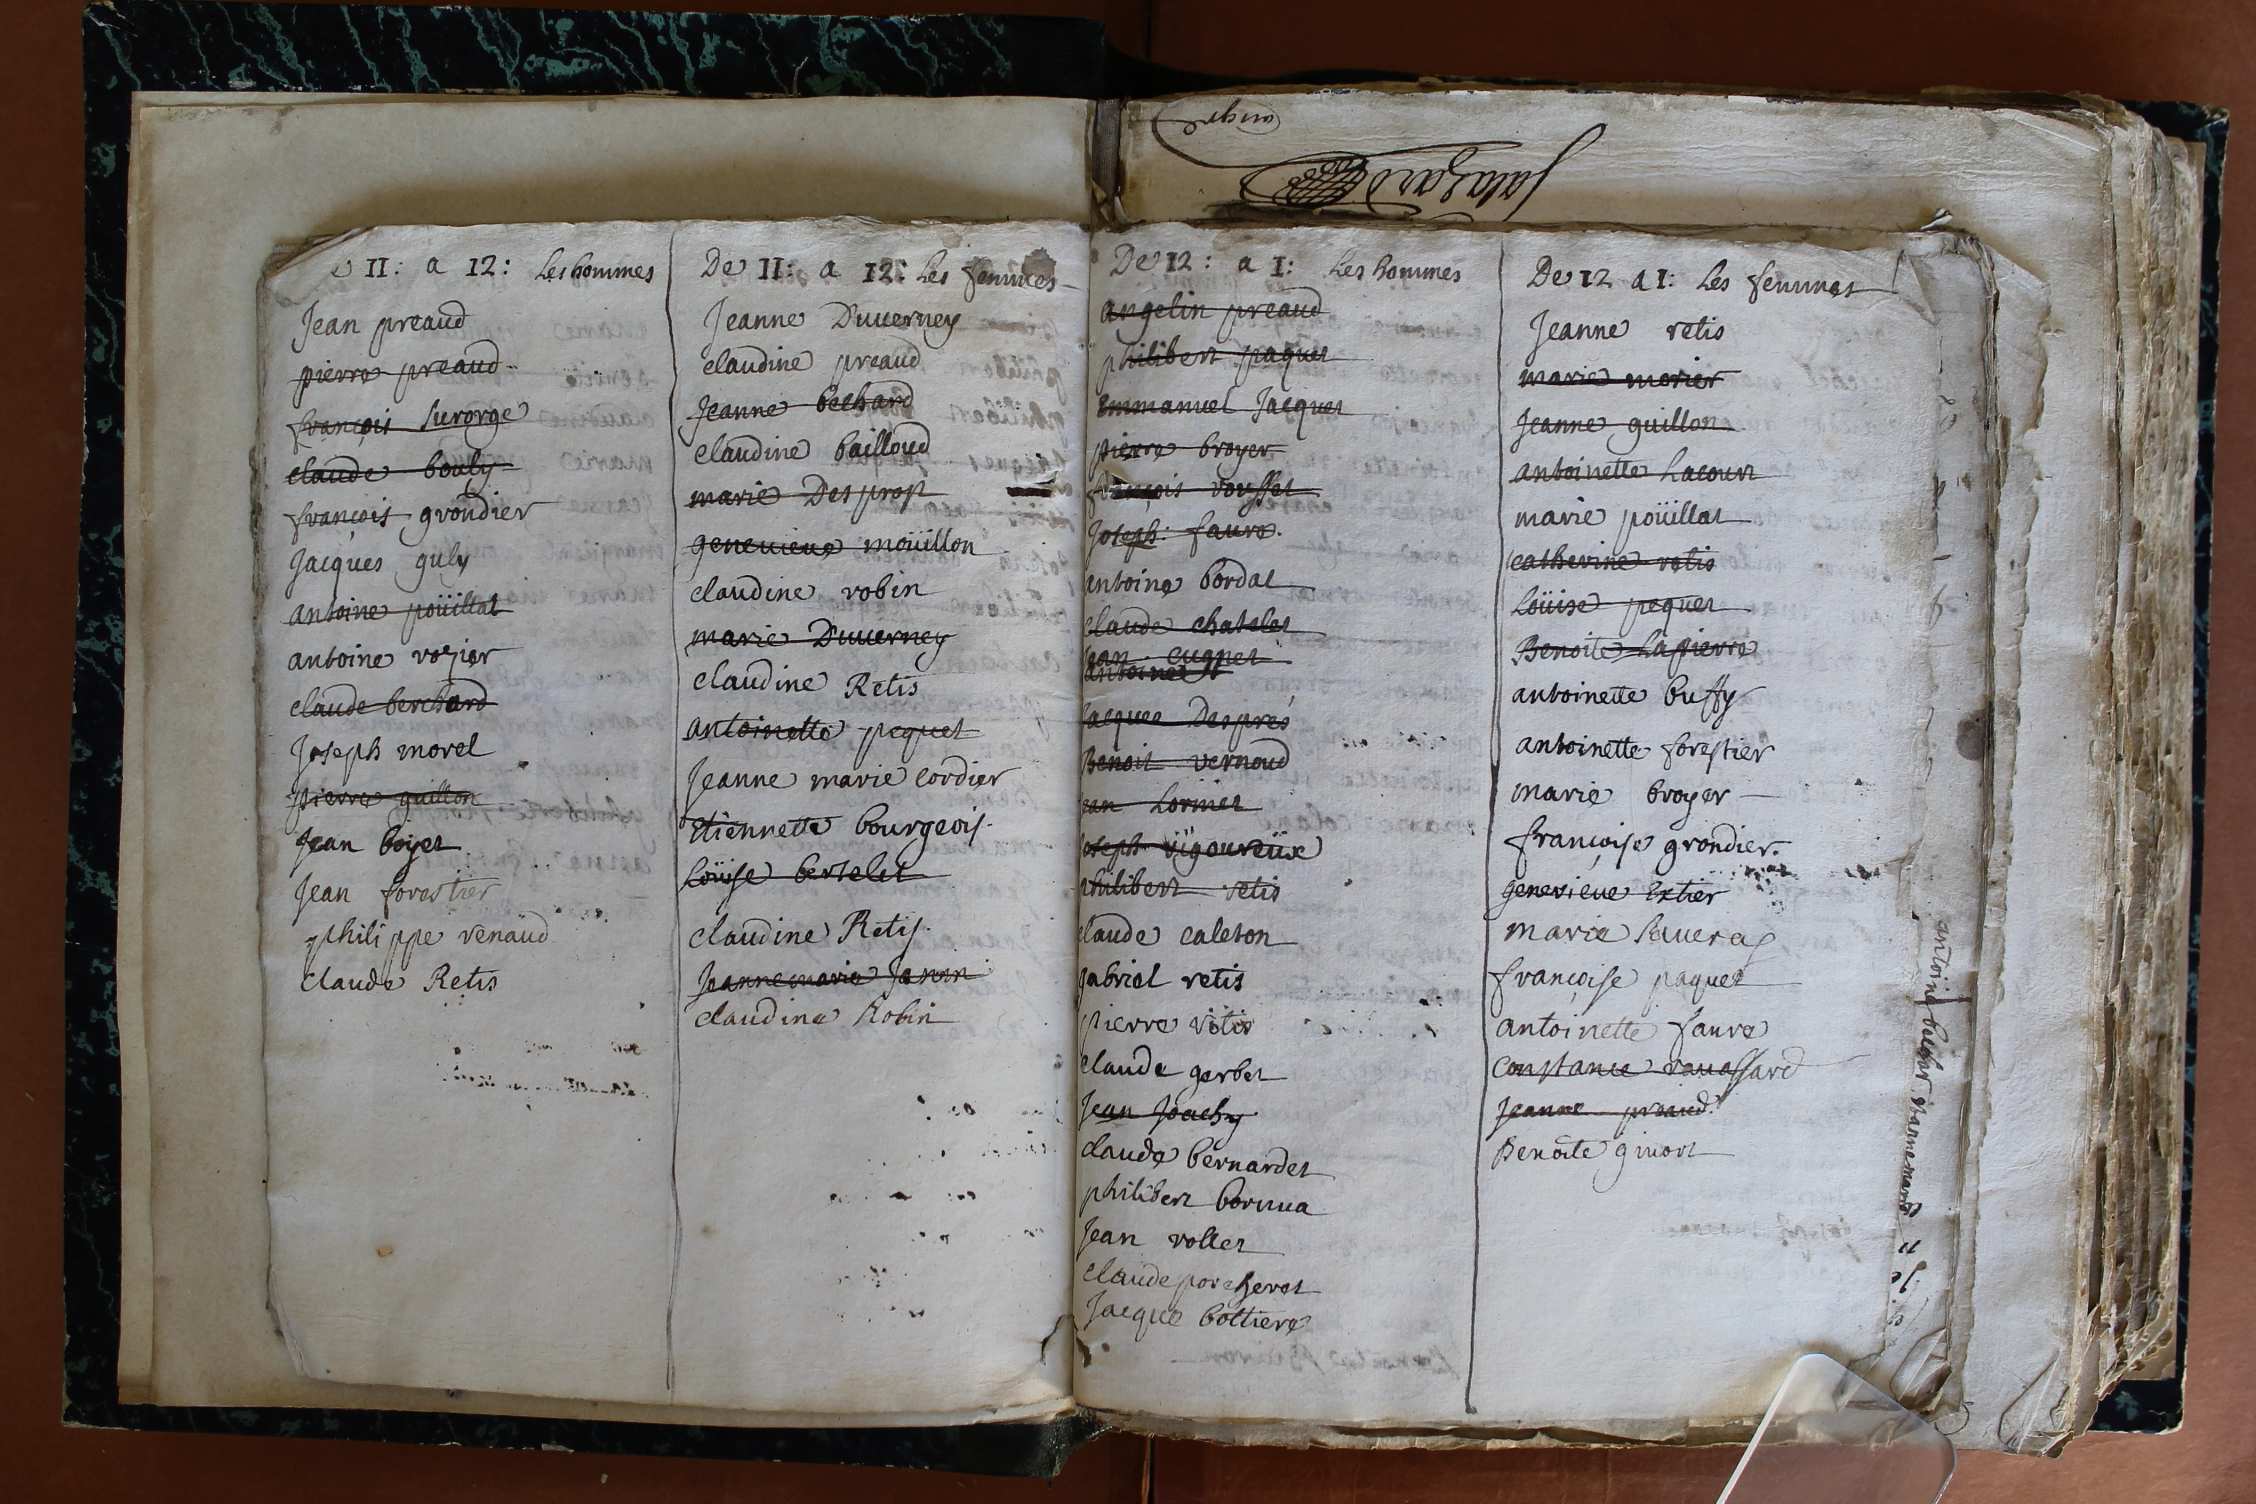 II: a 12: Les hommes
Jean preaud
pierre preaud
françois Surorge
claude bouly
françois grondier
Jacques guly
antoine poüillat
antoine rozier
claude berchard
Joseph morel
pierre guillon
Jean boyet
Jean forestier
philippe renaud
claude Retis
De II: a 12: Les femmes
Jeanne Duverney
claudine preaud
Jeanne bechard
claudine bailloud
marie Desprost
genevieve moüillon
claudine robin
marie Duverney
claudine Retis
antoinette pequet
Jeanne marie cordier
Etiennette bourgeois
Loüise bertelet
claudine Retis
Jeanne marie Janin
claudine Robin
De 12: a I: Les hommes
angelin preaud
philibert paquet
Emmanuel Jacquet
pierre broyer
françois voysset
Joseph: faure
antoine bordat
claude chatelet
Jean cugnet
antoine
Jacques Desprès
Benoit vernoud
Jean Lorinet
Joseph vigoureüx
philibert retis
claude caleton
gabriel retis
pierre vitis
claude gerbet
Jean Joachy
claude bernardet
philibert bornua
Jean vollet
claude porcheret
Jacque bottiere
De 12 a I: Les femmes
Jeanne retis
marie morier
Jeanne guillon
antoinette Lacour
marie poüillat
catherine retis
Loüise pequet
Benoite Lapierre
antoinette buffy
antoinette forestier
marie broyer
françoise grondier
genevieve Extier
marie
françoise paquet
antoinette faure
Constance ravassard
Jeanne preaud
Benoîte givort
antoine